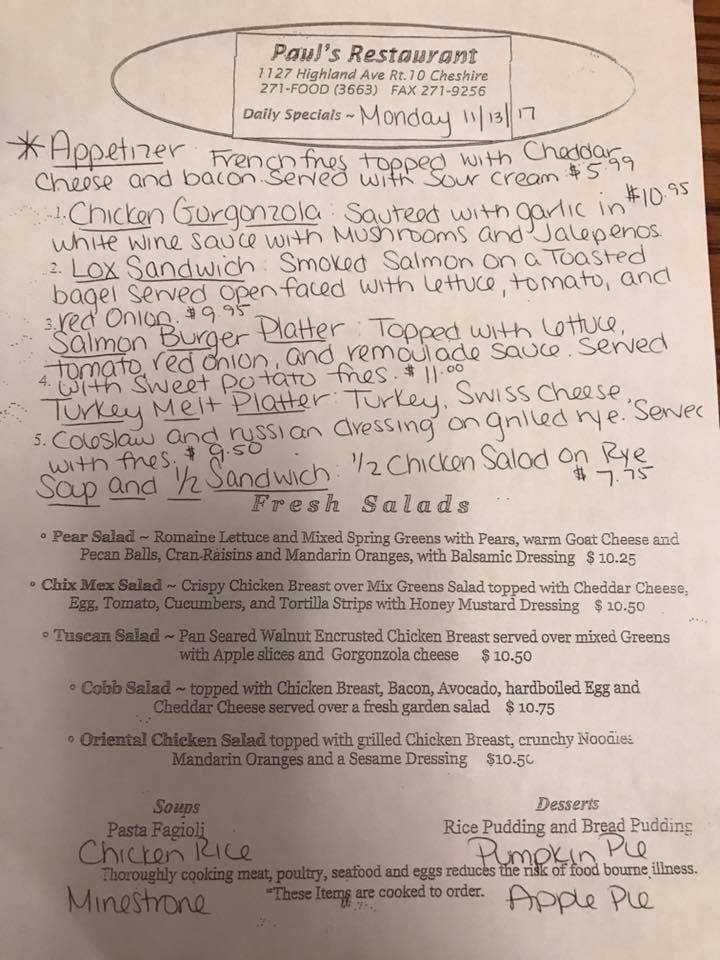 Paul's Restaurant
1127 Highland Ave Rt.10 Cheshire
271-FOOD (3663) FAX 271-9256
Daily Specials ~ Monday 11/13/17
*Appetizer: French fries topped with Cheddar
Cheese and bacon. Served with sour cream $5.99
1. Chicken Gorgonzola: Sauteed with garlic in $10.95
white wine sauce with Mushrooms and Jalepenos
2. Lox Sandwich: Smoked Salmon on a Toasted
bagel served open faced with lettuce, tomato, and
red onion. $9.95
3. Salmon Burger Platter: Topped with lettuce,
tomato, red onion, and remoulade sauce. Served
with sweet potato fries. $11.00
4. Turkey Melt Platter: Turkey, Swiss Cheese,
Coleslaw and russian dressing on grilled rye. Served
with fries. $9.50
5. Soup and 1/2 Sandwich: 1/2 Chicken Salad on Rye
$7.75
Fresh Salads
° Pear Salad ~ Romaine Lettuce and Mixed Spring Greens with Pears, warm Goat Cheese and
Pecan Balls, Cran-Raisins and Mandarin Oranges, with Balsamic Dressing $ 10.25
° Chix Mex Salad ~ Crispy Chicken Breast over Mix Greens Salad topped with Cheddar Cheese,
Egg, Tomato, Cucumbers, and Tortilla Strips with Honey Mustard Dressing $ 10.50
° Tuscan Salad ~ Pan Seared Walnut Encrusted Chicken Breast served over mixed Greens
with Apple slices and Gorgonzola cheese $ 10.50
° Cobb Salad ~ topped with Chicken Breast, Bacon, Avocado, hardboiled Egg and
Cheddar Cheese served over a fresh garden salad $ 10.75
° Oriental Chicken Salad topped with grilled Chicken Breast, crunchy Noodles
Mandarin Oranges and a Sesame Dressing $10.50
Soups
Pasta Fagioli
Chicken Rice
Desserts
Rice Pudding and Bread Pudding
Pumpkin Pie
Thoroughly cooking meat, poultry, seafood and eggs reduces the risk of food bourne illness.
*These Items are cooked to order.
Minestrone
Apple Pie